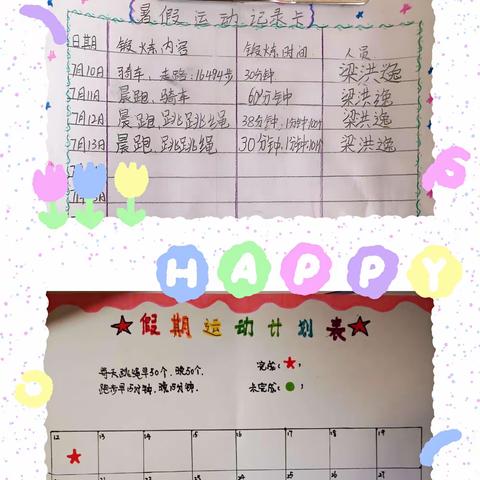 暑假运动记录卡
日期 锻炼内容 锻炼时间 人员
7月10日 骑车、走路:16494步 30分钟 梁洪逸
7月11日 晨跑、骑车 60分钟 梁洪逸
7月12日 晨跑、跳跳绳 38分钟、1分钟 梁洪逸
7月13日 晨跑、跳跳绳 30分钟、1分钟 梁洪逸
HAPPY
假期运动计划表
每天跳绳早50个.晚50个. 完成:★;
跑步早15分钟,晚15分钟. 未完成:●;
12 13 14 15 16 17 18 19